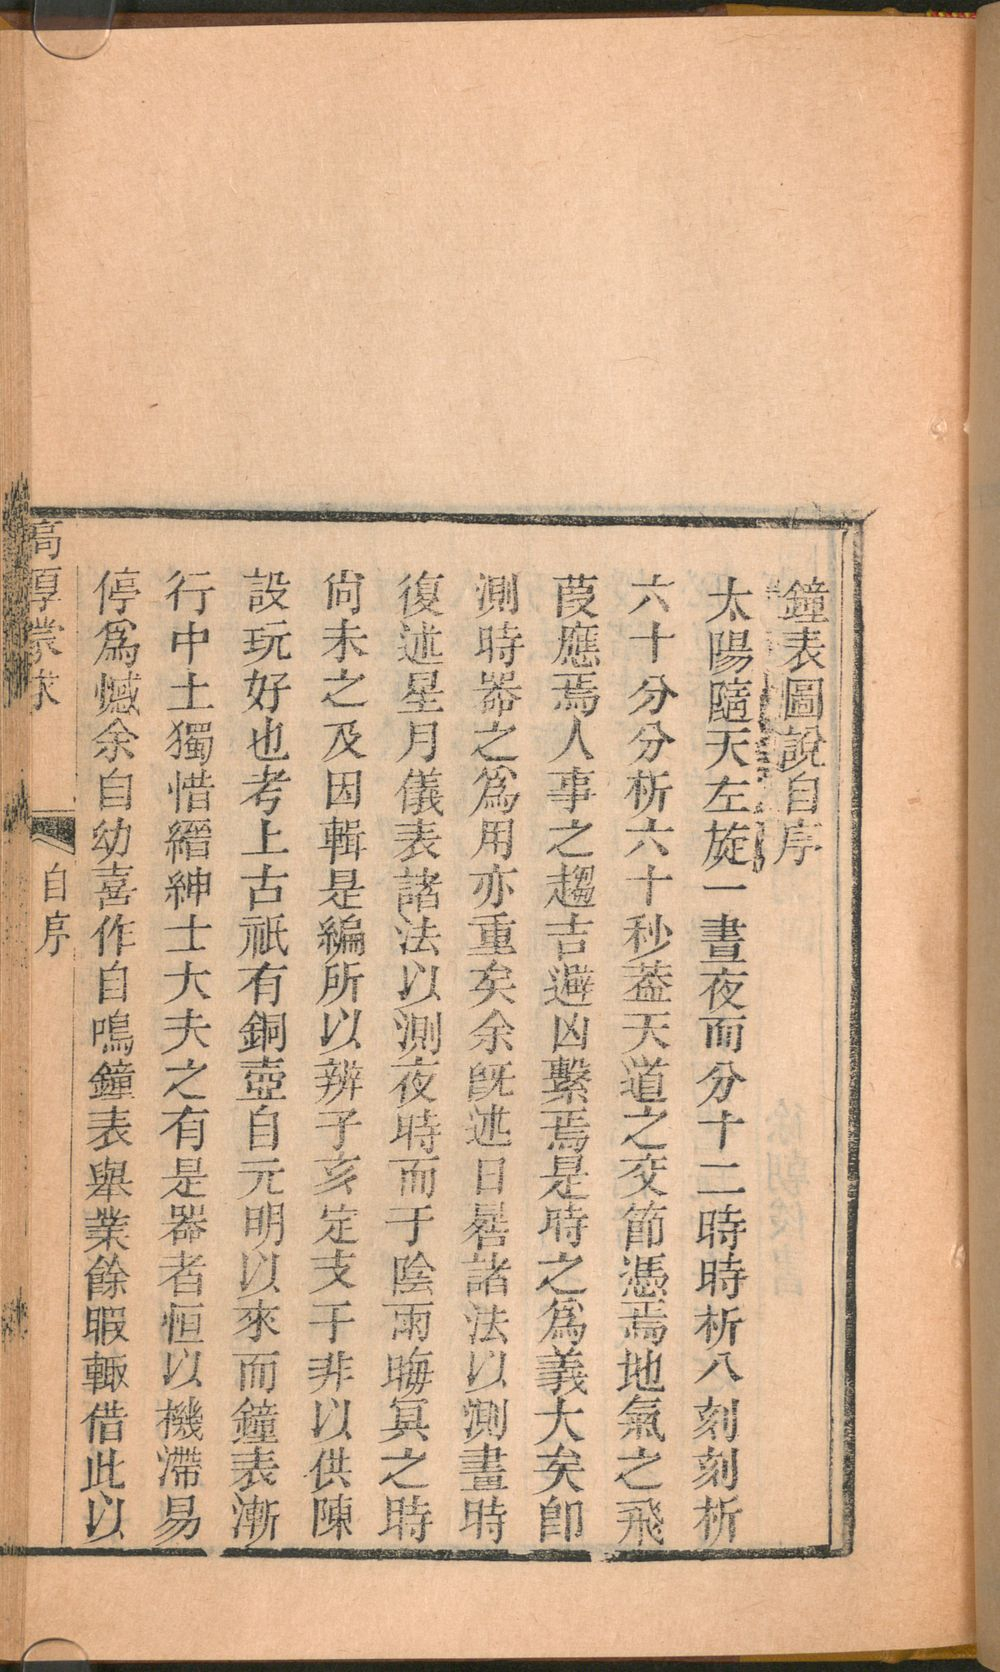 鐘表圖說自序
太陽隨天左旋一晝夜而分十二時時析八刻刻析
六十分分析六十秒蓋天道之交節憑焉地氣之飛
葭應焉人事之趨吉避凶繫焉是時之爲義大矣卽
測時器之爲用亦重矣余旣述日晷諸法以測晝時
復述星月儀表諸法以測夜時而于陰雨晦冥之時
尙未之及因輯是編所以辨子亥定支干非以供陳
設玩好也考上古祇有銅壺自元明以來而鐘表漸
行中土獨惜縉紳士大夫之有是器者恒以機滯易
停爲憾余自幼喜作自鳴鐘表舉業餘暇輒借此以
高厚蒙求
自序